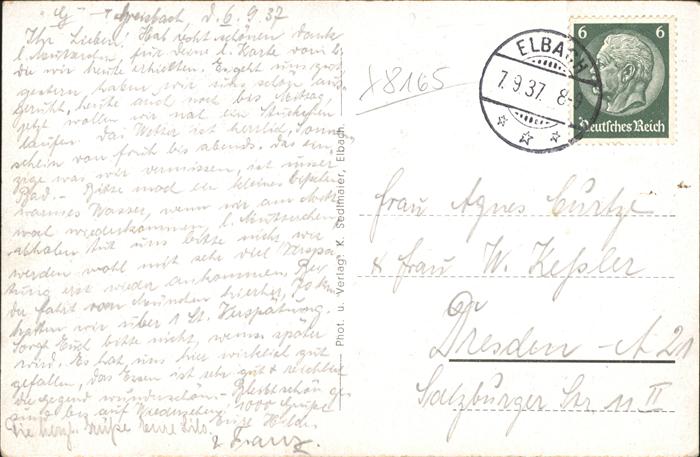 d. 6.9.37
Ihr Lieben! Hab recht schönen Dank
l. Muttchen für Deine l. Karte vom
die wir heute erhielten. Es geht uns gut
gestern haben wir uns schön
geruht, heute auch noch bis Mittag,
jetzt wollen wir mal ein Stückchen
laufen. Das Wetter ist herrlich, Sonnen
schein von früh bis abends. Das ein
zige was wir vermissen, ist unser
Bad. – Bitte mach ein kleines bißchen
warmes Wasser, wenn wir am Mitt
woch wiederkommen, l. Muttchen
abholen tut uns bitte nicht, wir
werden wohl mit sehr viel Verspä
tung erst wieder ankommen. Bei
der Fahrt von München hierher
hatten wir über 1 St. Verspätung.
Sorgt Euch bitte nicht, wenns später
wird. Es hat uns hier wirklich gut
gefallen, das Essen ist sehr gut & reichlich
die Gegend wunderschön. Bleibt schön ge
sund bis auf Wiedersehen. 1000 Grüße
Eure Hilde
Die herzl. Grüße Eure
& Franz.
Phot. u. Verlag: K. Sedlmaier, Elbach
18165
ELBACH
7.9.37. 8-9
6 6
Deutsches Reich
Frau Agnes Curtze
& Frau W. Keßler
Dresden - A 21
Salzburger Str. 11 II